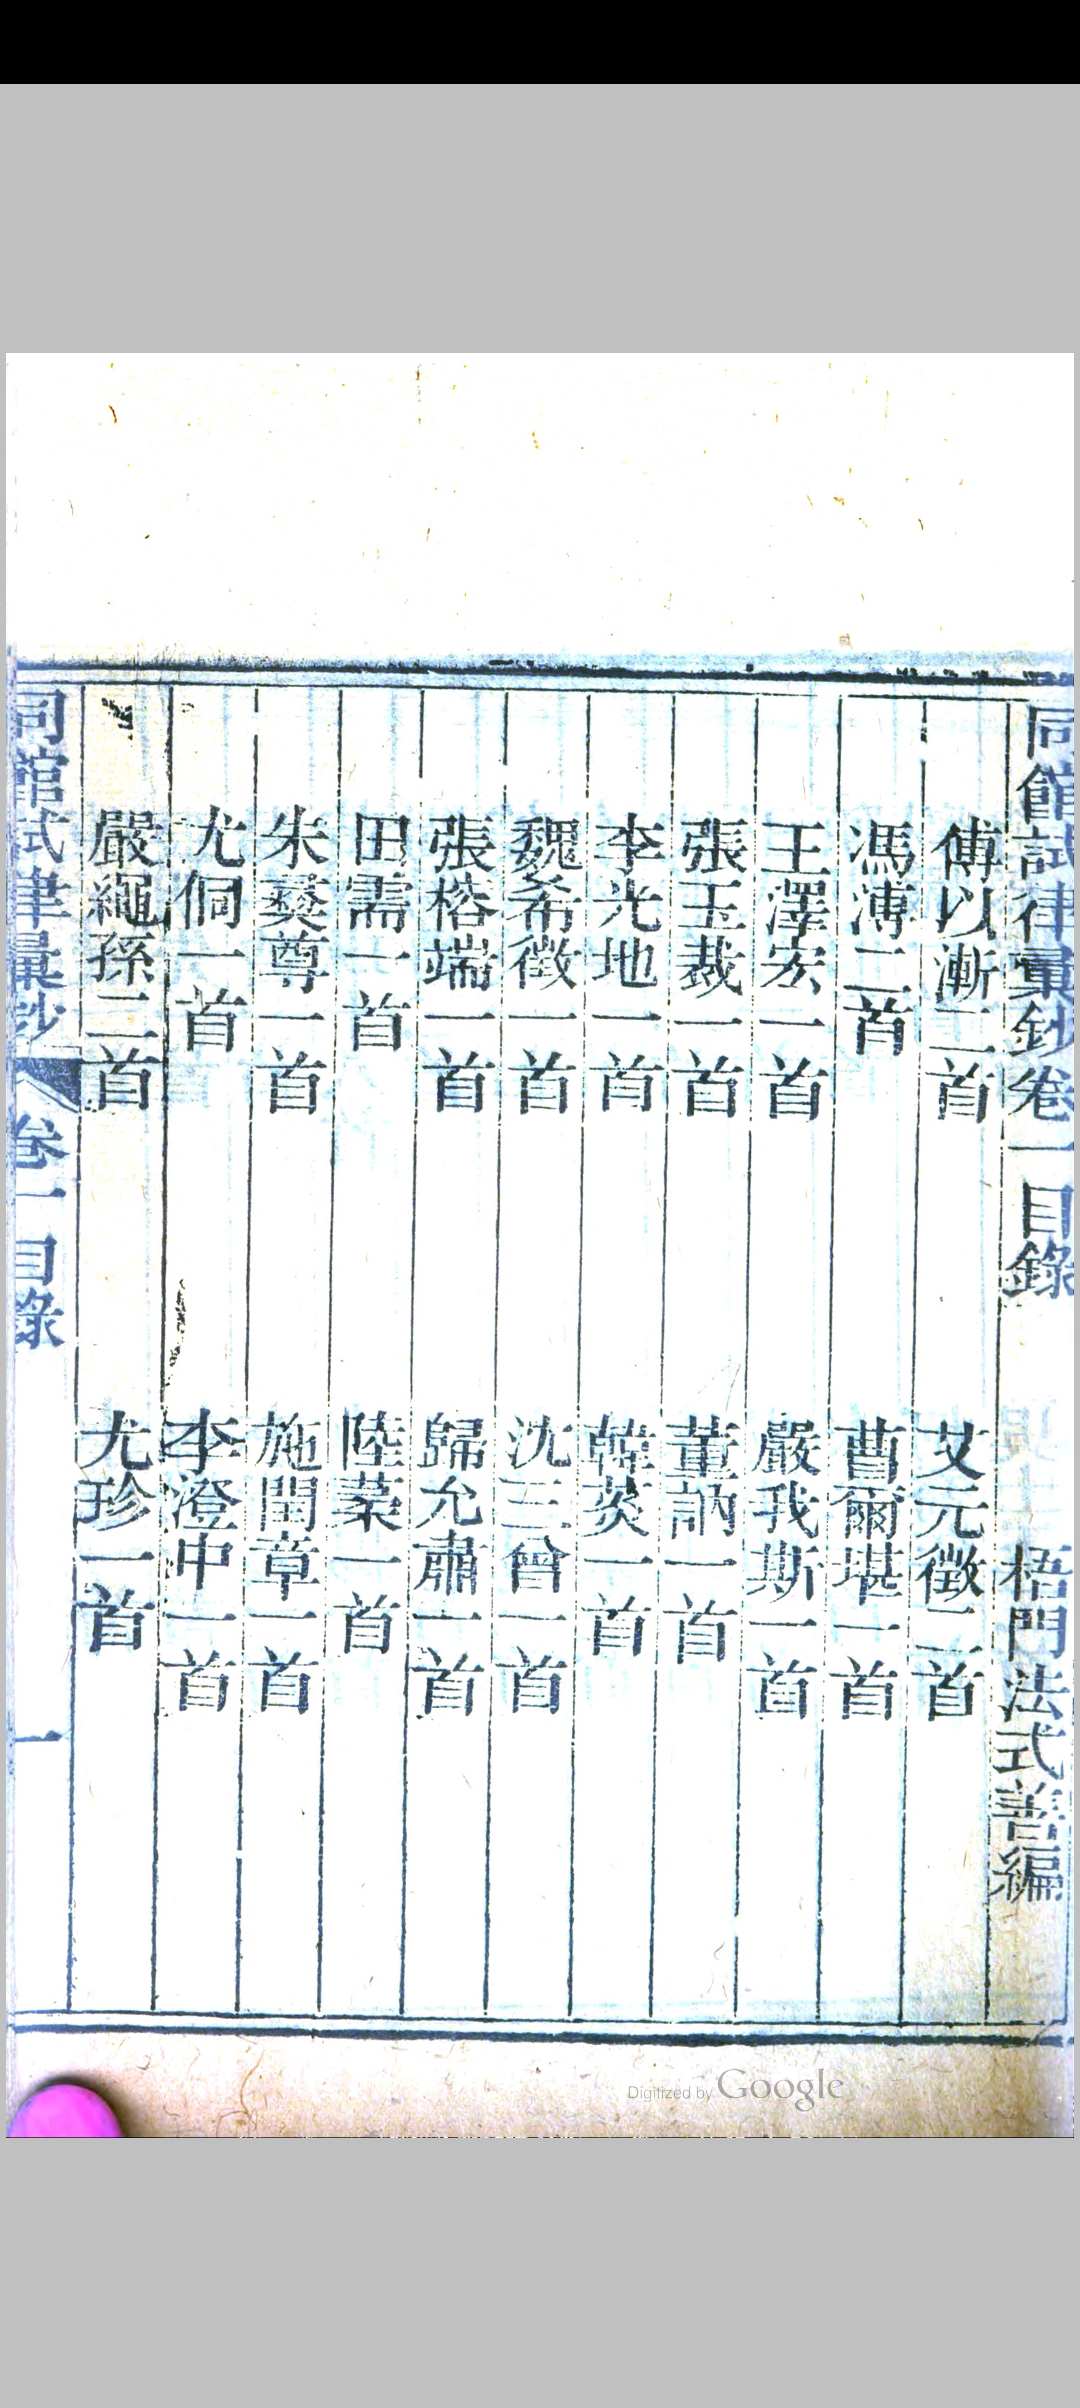 同館試律彙鈔卷一目錄
梧門法式善編
傅以漸二首
艾元徵二首
馮溥二首
曹爾堪一首
王澤宏一首
嚴我斯一首
張玉裁一首
董訥一首
李光地一首
韓菼一首
魏希徵一首
沈三曾一首
張榕端一首
歸允肅一首
田需一首
陸葇一首
朱彝尊一首
施閏章一首
尤侗一首
李澄中一首
嚴繩孫二首
尤珍一首
同館試律彙鈔
卷一目錄
一
Digitized by Google